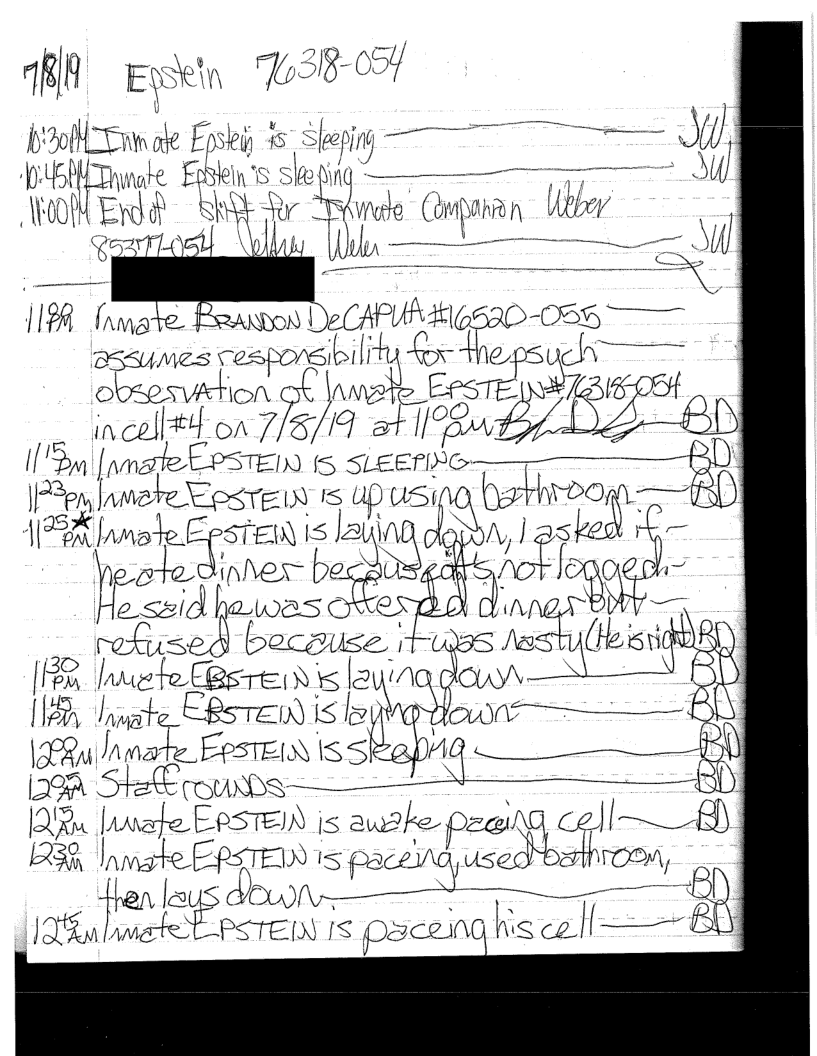 7/8/19 Epstein 76318-054
10:30PM Inmate Epstein is sleeping JW
10:45PM Inmate Epstein is sleeping JW
11:00PM End of shift for Inmate Companion Weber
85377-054 Jeffrey Weber JW
11:00 PM Inmate BRANDON DeCAPUA #16520-055
assumes responsibility for the psych
observation of Inmate EPSTEIN #76318-054
in cell #4 on 7/8/19 at 11:00 pm BD
11:15 PM Inmate EPSTEIN IS SLEEPING BD
11:23 PM Inmate EPSTEIN is up using bathroom BD
11:25 ★ PM Inmate EPSTEIN is laying down, I asked if
he ate dinner because it's not logged.
He said he was offered dinner but
refused because it was nasty (He is right) BD
11:30 PM Inmate EPSTEIN is laying down BD
11:45 PM Inmate EPSTEIN is laying down BD
12:00 AM Inmate EPSTEIN is sleeping BD
12:05 AM Staff rounds BD
12:15 AM Inmate EPSTEIN is awake paceing cell BD
12:30 AM Inmate EPSTEIN is paceing, used bathroom,
then lays down BD
12:45 AM Inmate EPSTEIN is paceing his cell BD